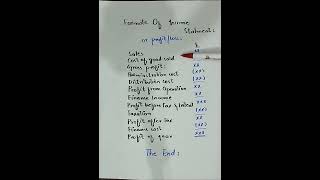 Formate Of Income
Statment:
or profit/loss:
Sales xx
Cost of good sold
Gross profit: xx
Administration cost (xx)
Distribution cost (xx)
Profit from operation xx
Finance Income xx
Profit before tax & xx
Taxation (xx)
Profit after tax xx
Finance cost (xx)
Profit of year xxx
The End: